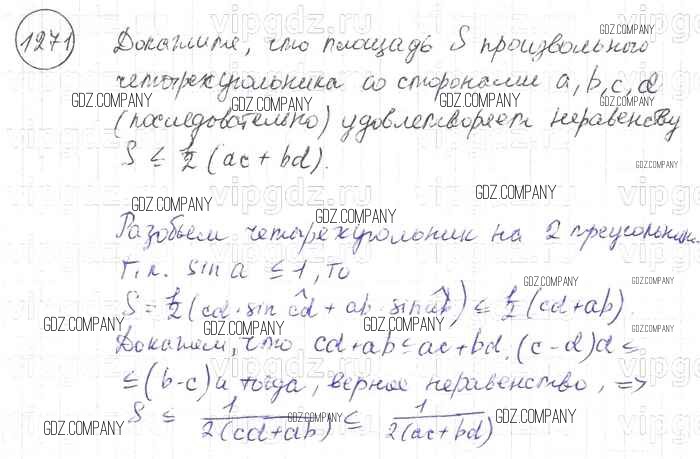 1271 Докажите, что площадь S произвольного
четырехугольника со сторонами a, b, c, d
(последовательно) удовлетворяет неравенству
S ≤ 1/2 (ac + bd).
Разобьем четырехугольник на 2 треугольник.
т.к. sin a ≤ 1, то
S = 1/2 (cd · sin cd + ab · sin ab) ≤ 1/2 (cd + ab).
Докажем, что cd + ab ≤ ac + bd, (c - d)d ≤
≤ (b - c) и тогда, верное неравенство, =>
S ≤ 1/2(cd + ab) ≤ 1/2(ac + bd)
GDZ.COMPANY
vipgdz.ru